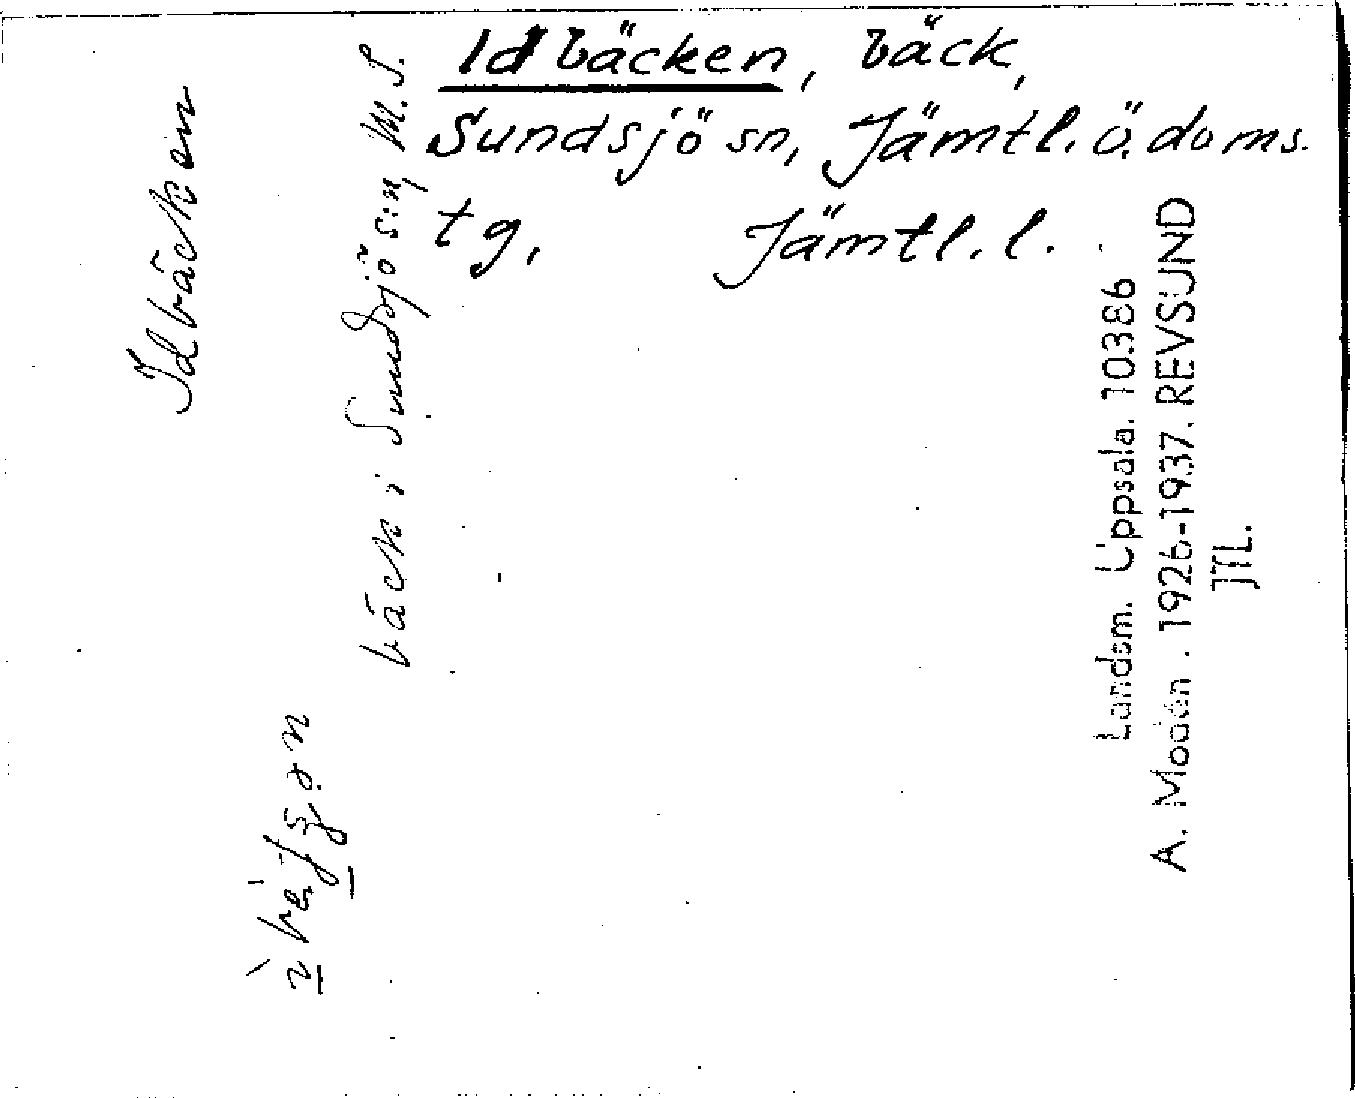 Idbäcken, bäck,
Sundsjö sn, Jämtl. ö. doms.
tg, Jämtl. l.
Idbäcken
bäck i Sundsjö s:n M. S.
Landsm. Uppsala. 10386
A. Modén. 1926-1937. REVSUND
JTL.